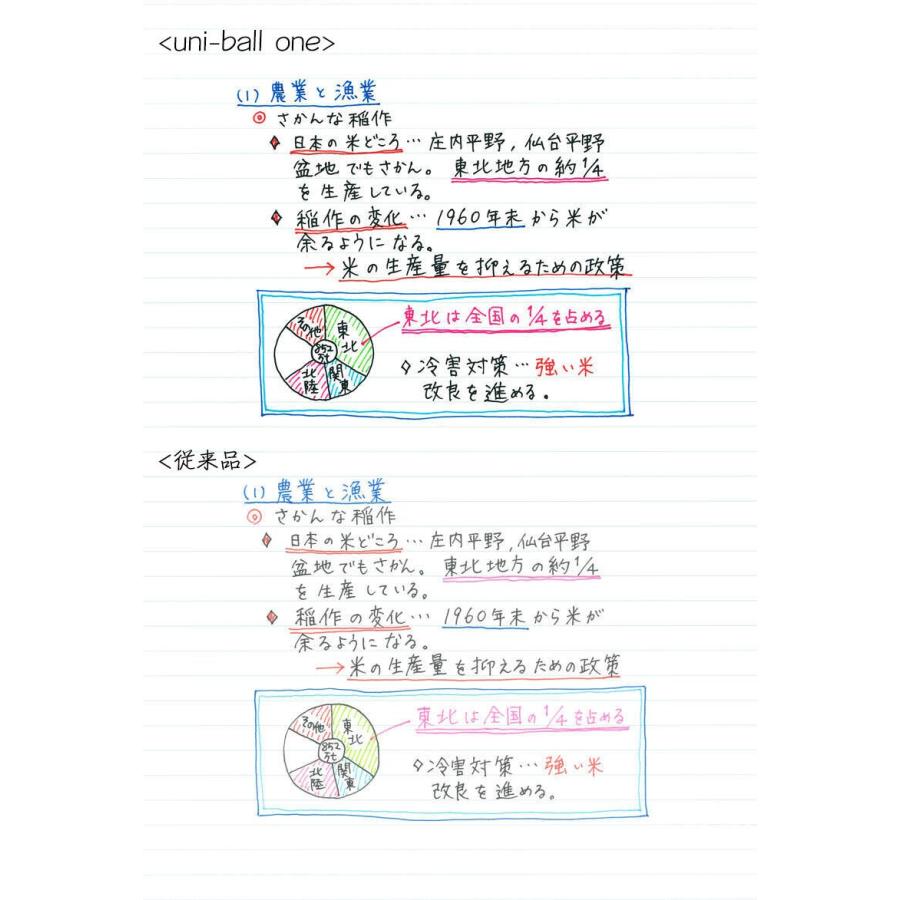 <uni-ball one>
(1) 農業と漁業
◎ さかんな稲作
♦ 日本の米どころ… 庄内平野, 仙台平野
盆地でもさかん。 東北地方の約1/4
を生産している。
♦ 稲作の変化… 1960年末から米が
余るようになる。
→ 米の生産量を抑えるための政策
その他
東北
852万t
北陸
関東
東北は全国の1/4を占める
◇冷害対策…強い米
改良を進める。
<従来品>
(1) 農業と漁業
◎ さかんな稲作
♦ 日本の米どころ… 庄内平野, 仙台平野
盆地でもさかん。 東北地方の約1/4
を生産している。
♦ 稲作の変化… 1960年末から米が
余るようになる。
→ 米の生産量を抑えるための政策
その他
東北
852万t
北陸
関東
東北は全国の1/4を占める
◇冷害対策…強い米
改良を進める。